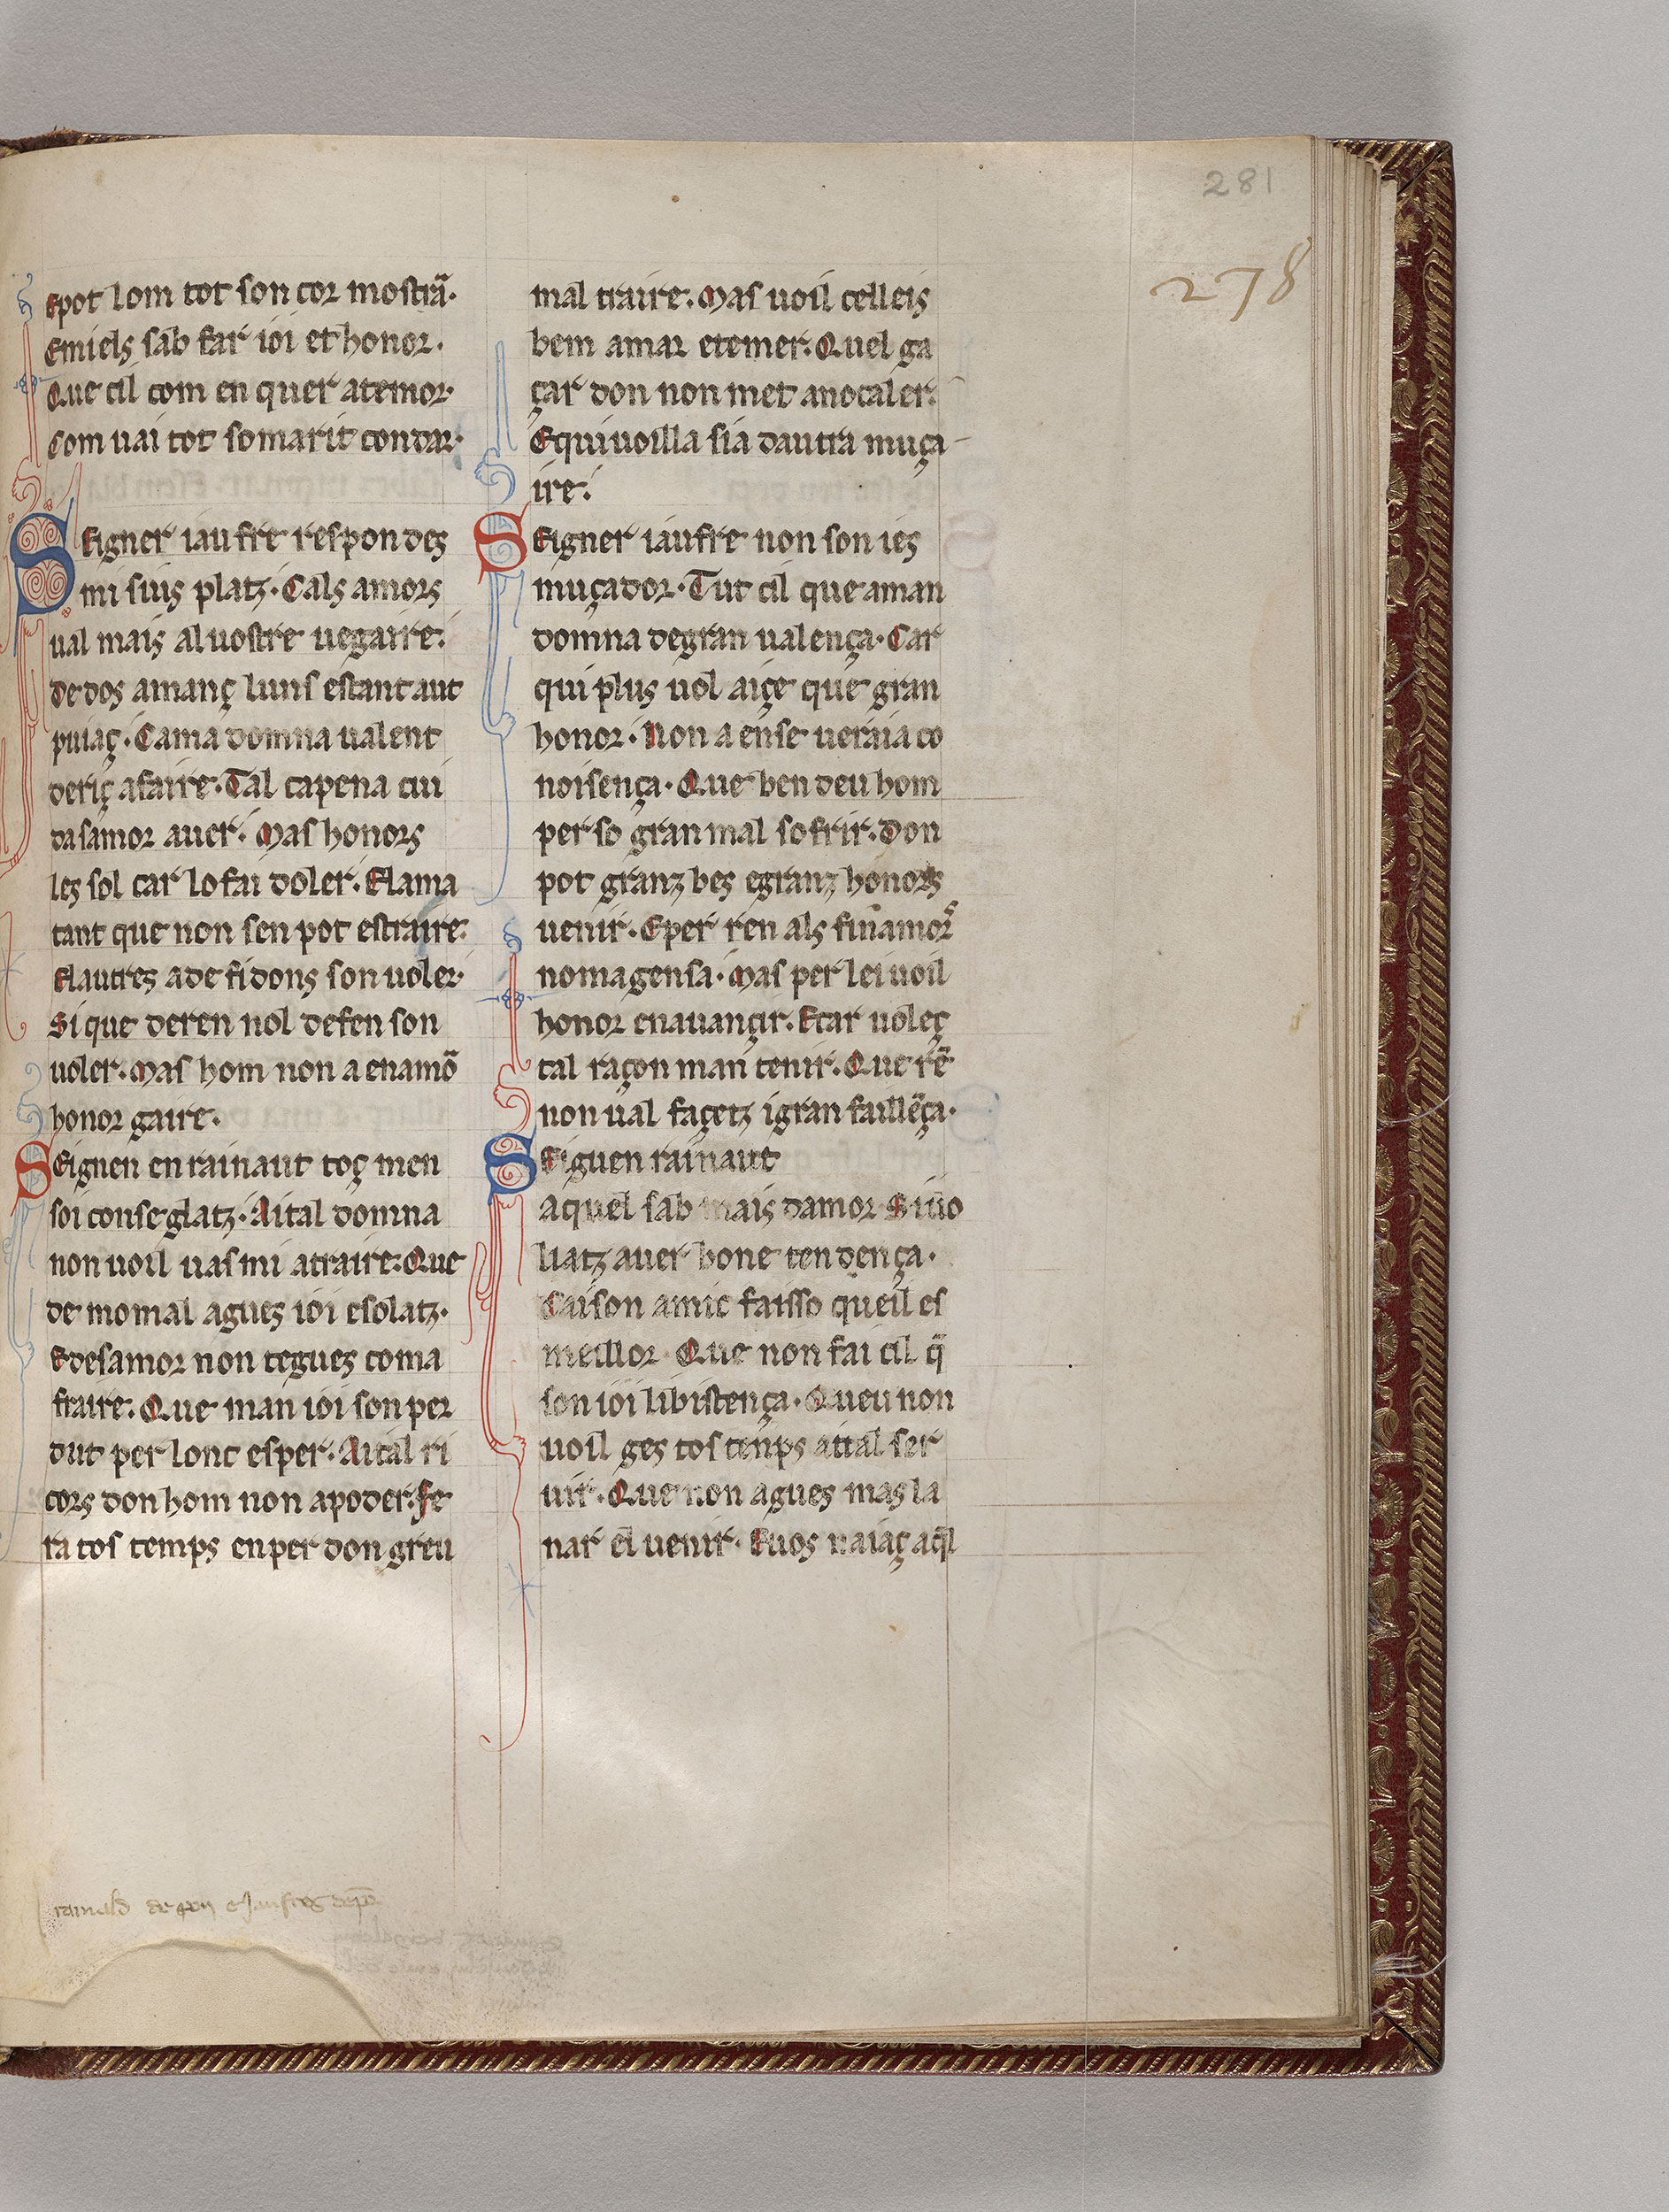 281
278
Epot lom tot son cor mostrã.
Emiels sab far ioi et honor.
Que cil com en quer atemor.
Com uai tot somarit contar.
SEigner iaufre respondes
mi suis platz. Cals amors
ual mais al uostre uegaire.
de dos amanç luns estant aut
puiaç. Cama domna ualent
deriç afaire. Tal capena cui
da samor auer. Mas honors
les sol car lo fai doler. Elama
tant que non sen pot estraire.
Elautres ade sidons son uoler.
Si que deren nol defen son
uoler. Mas hom non a enamõ
honor gaire.
SEignen en rainaut toç men
soi conseglatz. Aital domna
non uoil uas mi atraire. Que
de mo mal agues ioi esolatz.
Edesamor non tegues coma
fraire. Que man ioi son per
dut per lonc esper. Aital ri
cors don hom non a poder. Se
ra tos temps enper don greu
mal traire. Mas uoil celleis
bem amar etemer. Quel ga
çar don non met anocaler.
Equi uoilla sia dautra muça
ire.
SEigner iaufre non son ies
muçador. Tut cil que aman
domna degran ualença. Car
qui plus uol aiçe que gran
honor. Non a ense ueraia co
noisença. Que ben deu hom
per so gran mal sofrir. Don
pot granz bes egranz honors
uenir. Eper ren als finamors
nomagensa. Mas per lei uoil
honor enauançir. Ecar uoleç
tal raçon man tenir. Que rẽ
non ual façetz igran faillẽça.
SEiguen rainaut
aquel sab mais damor Si uo
liatz auer bone ten dença.
Caison amic faisso queil es
meillor Que non fai cil q̃
son ioi libistença. Queu non
uoil ges tos temps aital ser
uir. Que non agues mas la
nar el uenir. Euos naiaç aq̃l
rainald de pon e Jaufres depõ